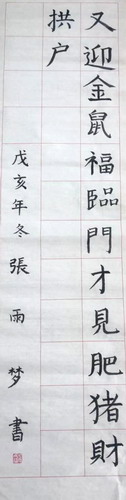 又迎金鼠福臨門才見肥猪財
拱户
戊亥年冬張雨梦書